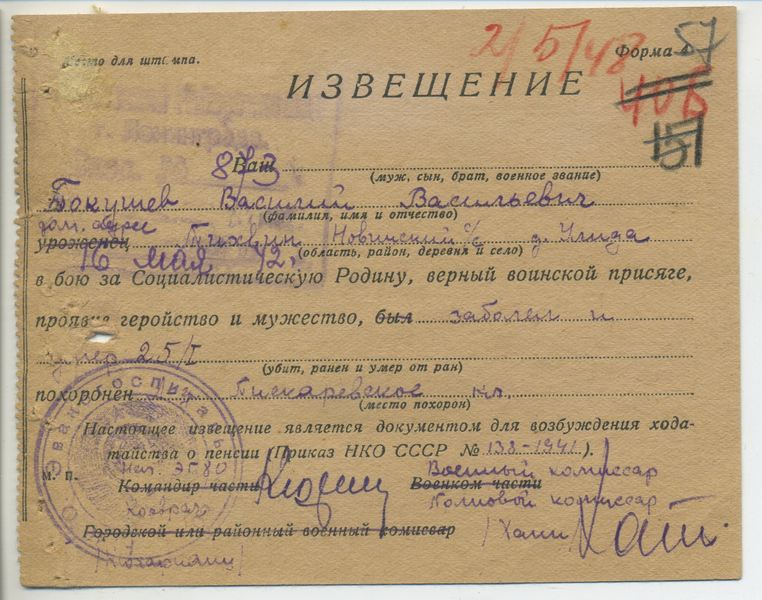 Место для штампа.
2/5/48
Форма 57
ИЗВЕЩЕНИЕ
г. Ленинграда
873
Ваш
(муж, сын, брат, военное звание)
Бакушев Василий Васильевич
(фамилия, имя и отчество)
дом. адрес
уроженец Тихвин Новинский с/с д. Улида
(область, район, деревня и село)
16 мая 42 г.
в бою за Социалистическую Родину, верный воинской присяге,
проявив геройство и мужество, был заболел и
умер 25/I
(убит, ранен и умер от ран)
похорбнен Пискаревское кл.
(место похорон)
Настоящее извещение является документом для возбуждения хода-
тайства о пенсии (Приказ НКО СССР № 138-1941).
Нач. ЭГ 80
Военный комиссар
м. п. Командир части Военком части
Полковой комиссар
Городской или районный военный комиссар